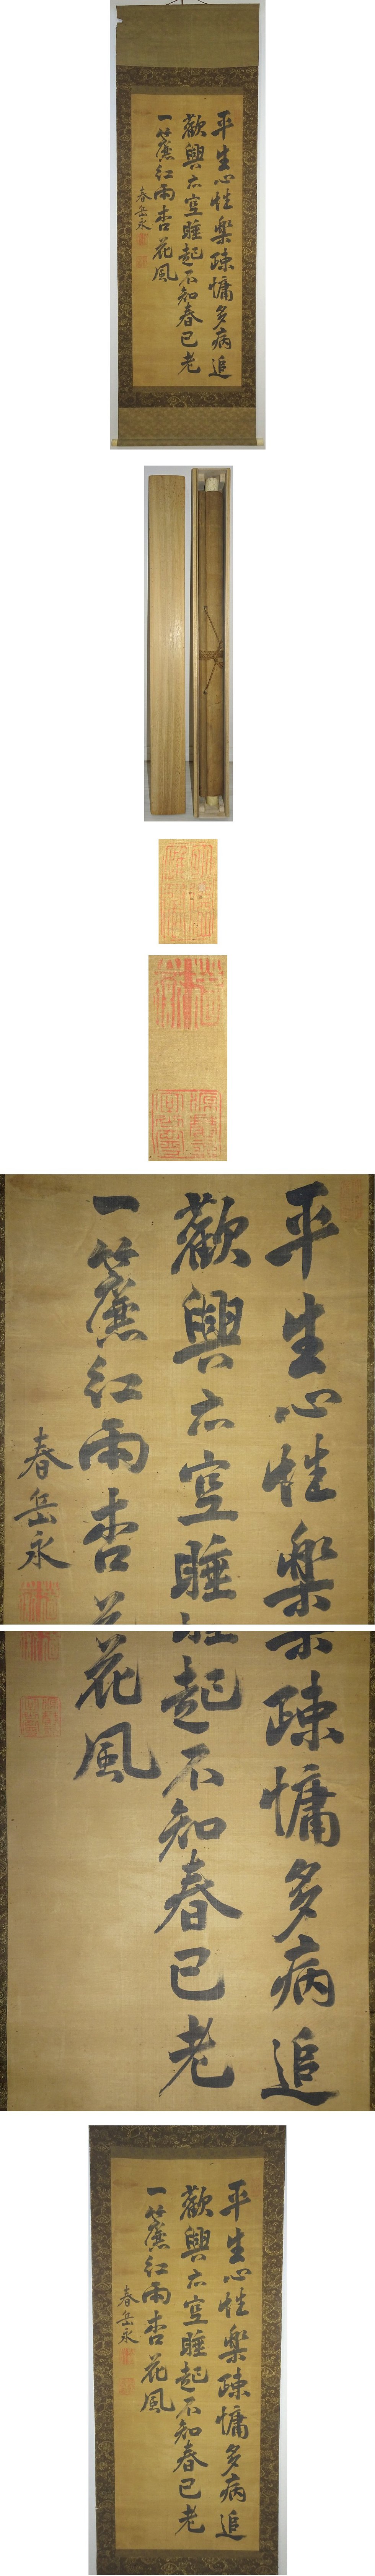 平生心性楽疎慵多病追
歡興亦空睡起不知春已老
一簾紅雨杏花風
春岳永
平生心性楽疎慵
歡興亦空睡
一簾紅雨杏
春岳永
楽疎慵多病追
起不知春已老
花風
平生心性楽疎慵多病追
歡興亦空睡起不知春已老
一簾紅雨杏花風
春岳永